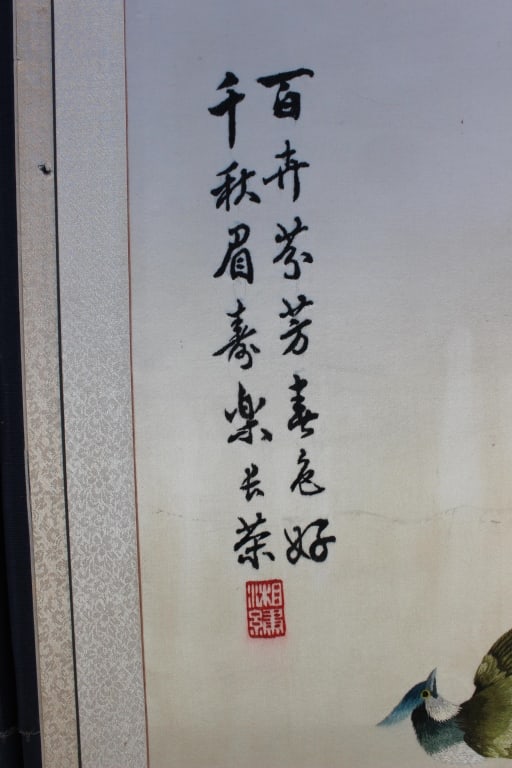 百卉芬芳春色好
千秋眉寿樂长荣
湘繡